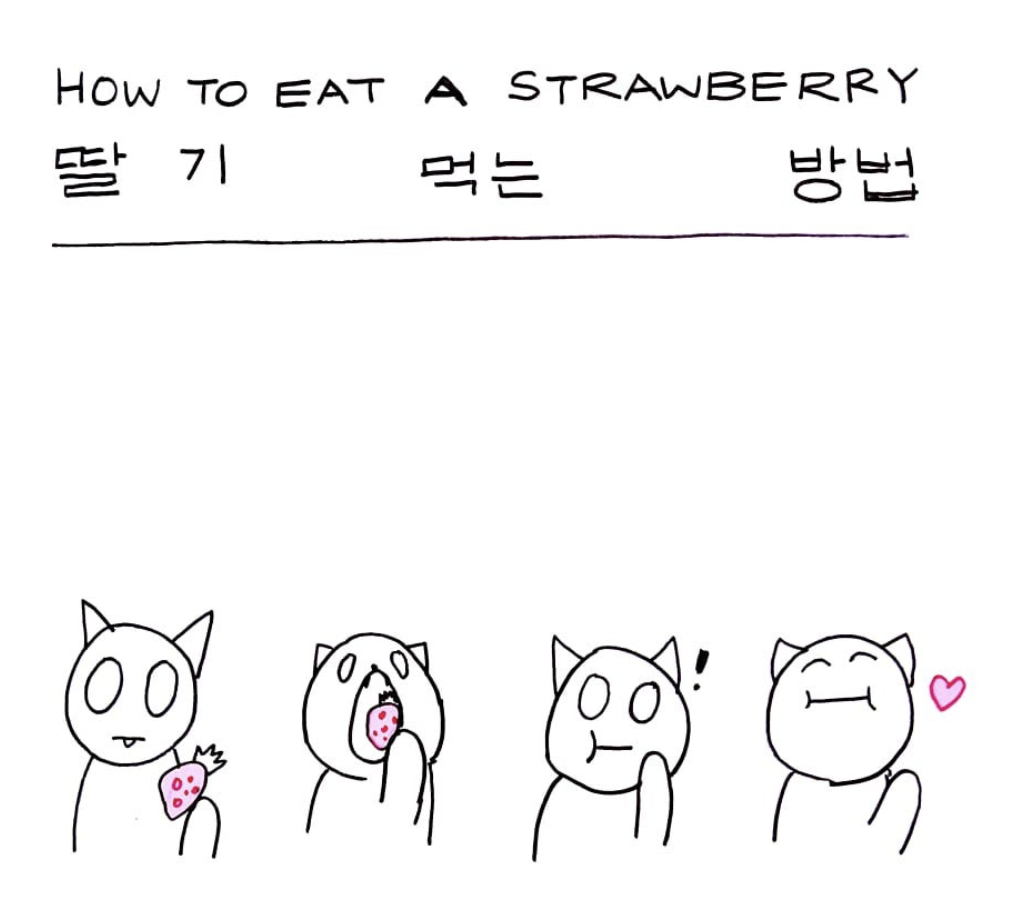 HOW TO EAT A STRAWBERRY
딸 기 먹는 방법
!